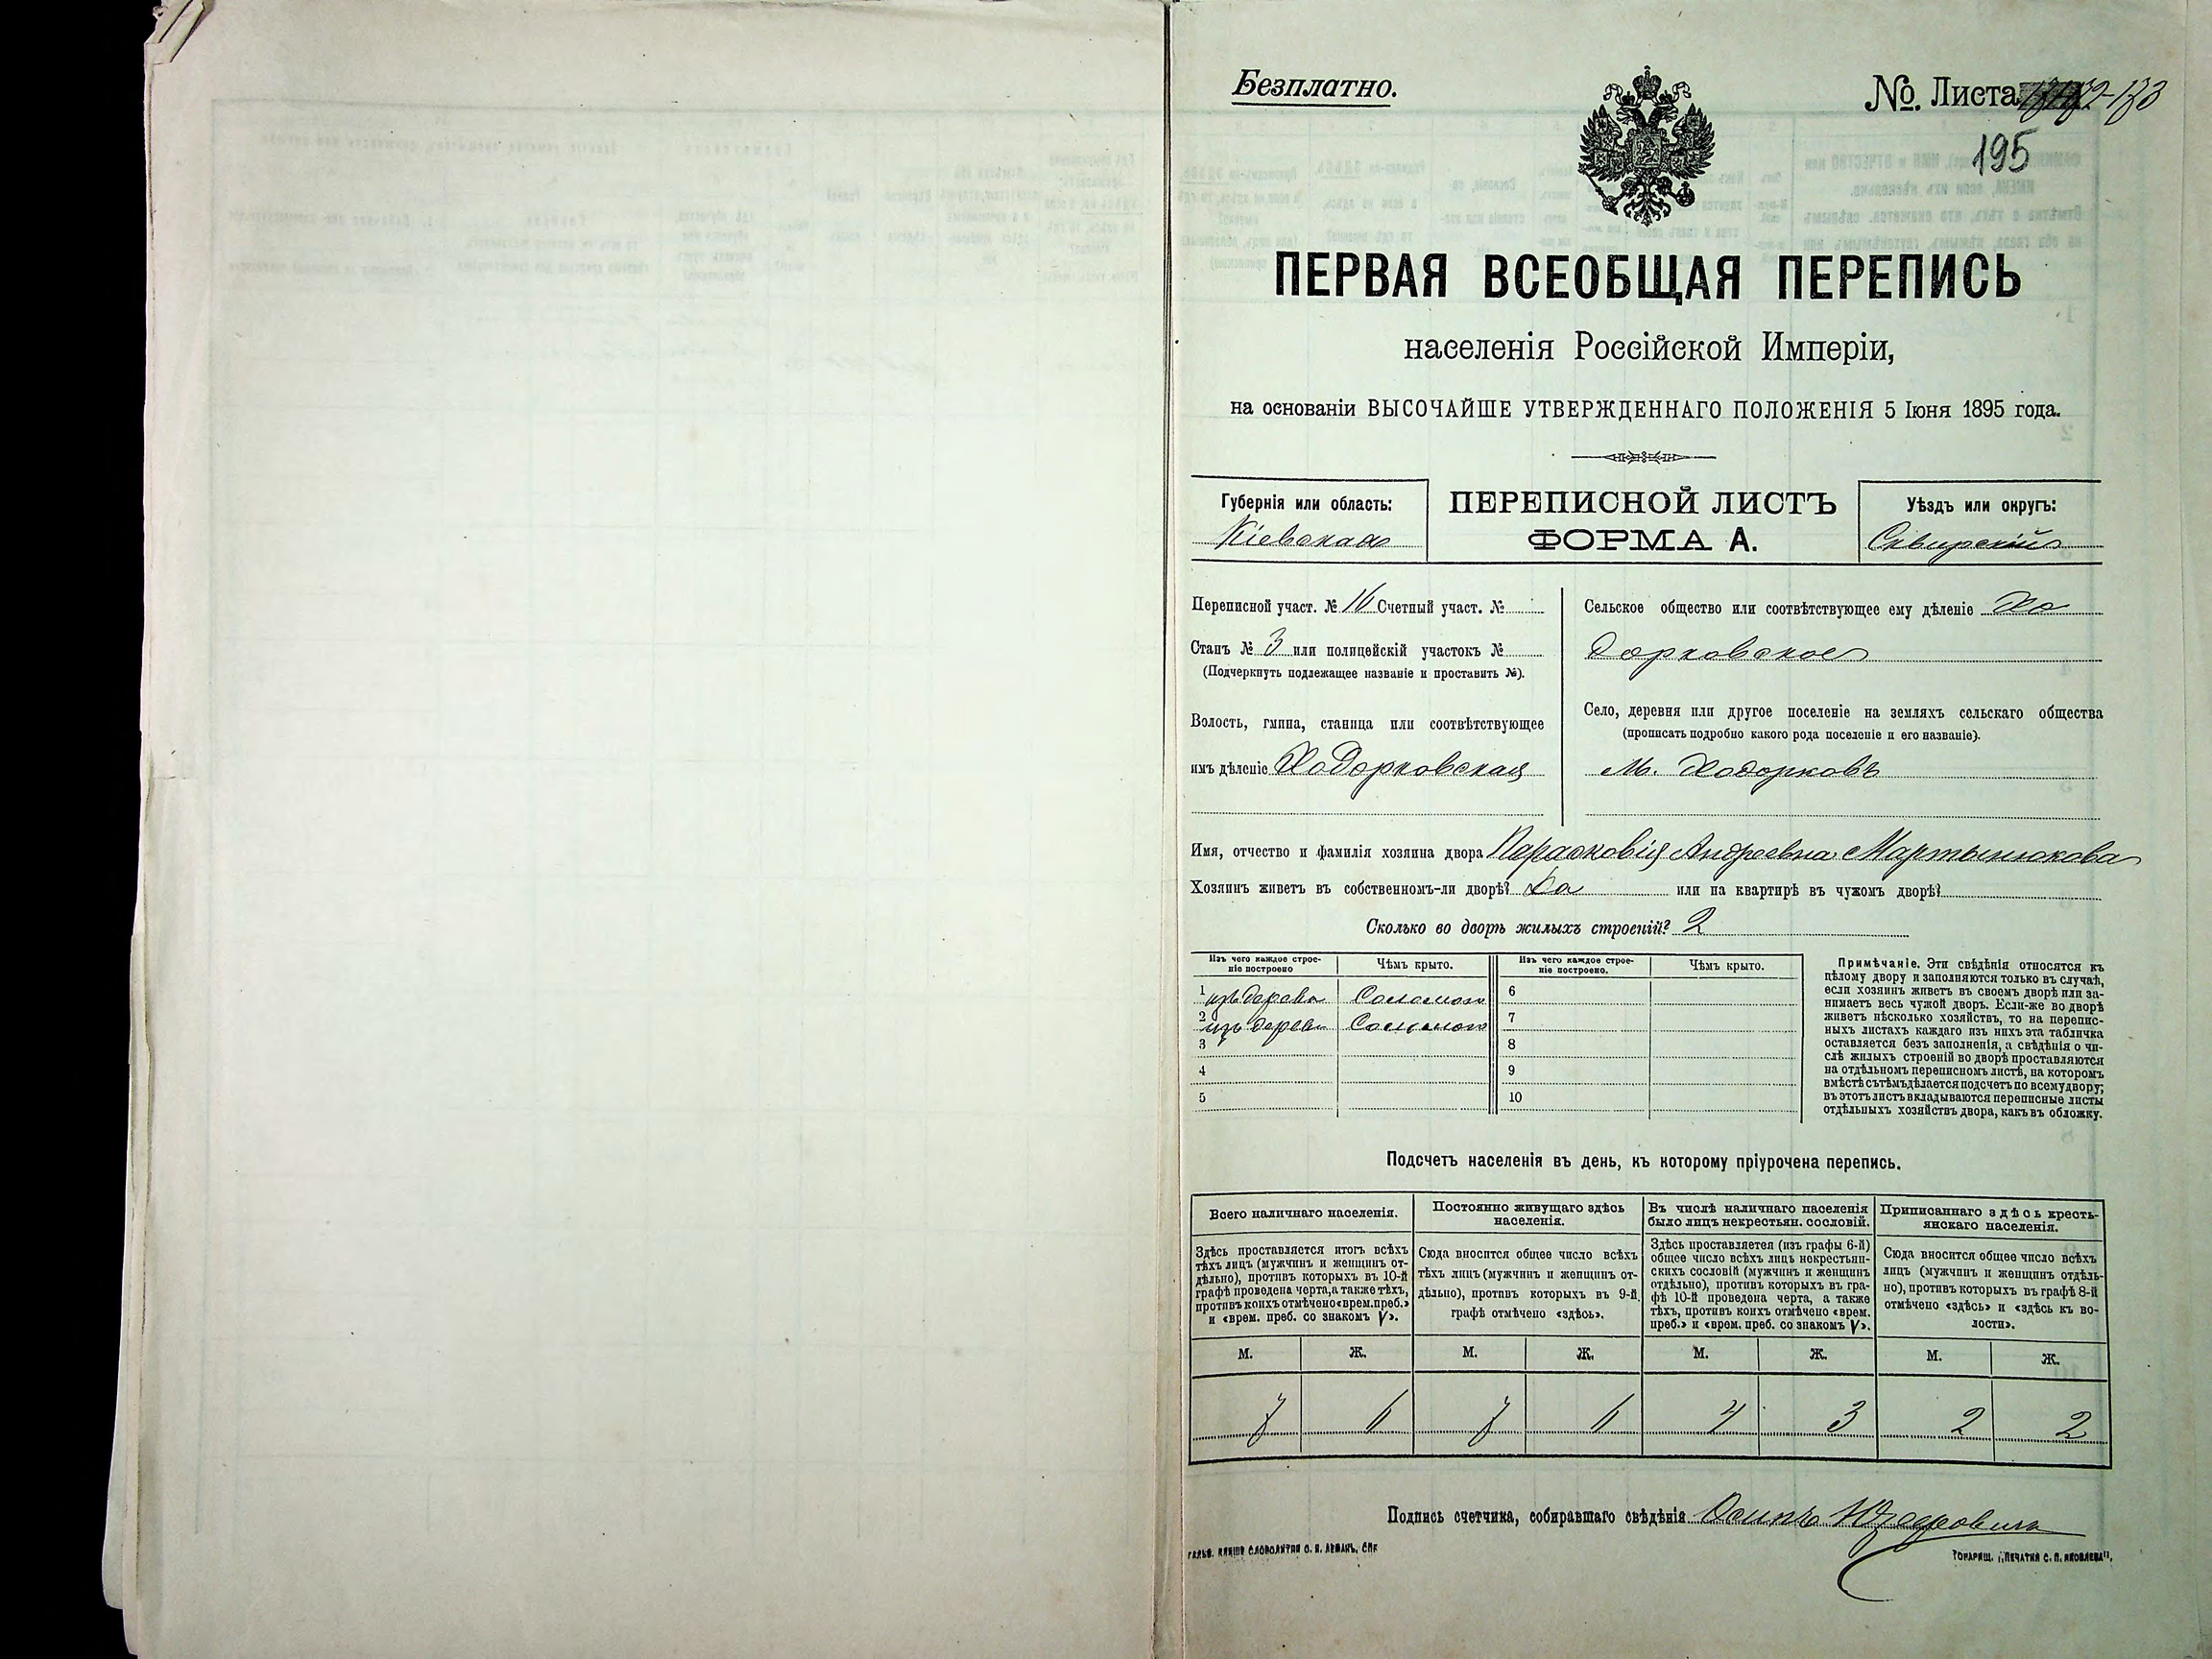 Безплатно.
№. Листа 172-173
195
ПЕРВАЯ ВСЕОБЩАЯ ПЕРЕПИСЬ
населенія Россійской Имперіи,
на основаніи ВЫСОЧАЙШЕ УТВЕРЖДЕННАГО ПОЛОЖЕНІЯ 5 Іюня 1895 года.
Губернія или область:
Кіевская
ПЕРЕПИСНОЙ ЛИСТЪ
ФОРМА А.
Уѣздъ или округъ:
Сквирскій
Переписной участ. № 16 Счетный участ. №
Станъ № 3 или полицейскій участокъ №
(Подчеркнуть подлежащее названіе и проставить №).
Волость, гмина, станица или соотвѣтствующее
имъ дѣленіе Ходорковская
Сельское общество или соотвѣтствующее ему дѣленіе Хо
дорковское
Село, деревня или другое поселеніе на земляхъ сельскаго общества
(прописать подробно какого рода поселеніе и его названіе).
м. Ходорковъ
Имя, отчество и фамилія хозяина двора Парасковія Андреевна Мартынюкова
Хозяинъ живетъ въ собственномъ-ли дворѣ? Да или на квартирѣ въ чужомъ дворѣ?
Сколько во дворѣ жилыхъ строеній? 2
Изъ чего каждое строе-
ніе построено
Чѣмъ крыто.
Изъ чего каждое строе-
ніе построено.
Чѣмъ крыто.
1 изъ дерева Соломой 6
2 изъ дерева Соломой 7
3 8
4 9
5 10
Примѣчаніе. Эти свѣдѣнія относятся къ
цѣлому двору и заполняются только въ случаѣ,
если хозяинъ живетъ въ своемъ дворѣ или за-
нимаетъ весь чужой дворъ. Если-же во дворѣ
живетъ нѣсколько хозяйствъ, то на перепис-
ныхъ листахъ каждаго изъ нихъ эта табличка
оставляется безъ заполненія, а свѣдѣнія о чи-
слѣ жилыхъ строеній во дворѣ проставляются
на отдѣльномъ переписномъ листѣ, на которомъ
вмѣстѣ съ тѣмъ дѣлается подсчетъ по всему двору;
въ этотъ листъ вкладываются переписные листы
отдѣльныхъ хозяйствъ двора, какъ въ обложку.
Подсчетъ населенія въ день, къ которому пріурочена перепись.
Всего наличнаго населенія.
Здѣсь проставляется итогъ всѣхъ
тѣхъ лицъ (мужчинъ и женщинъ от-
дѣльно), противъ которыхъ въ 10-й
графѣ проведена черта, а также тѣхъ,
противъ коихъ отмѣчено «врем. преб.»
и «врем. преб. со знакомъ V».
Постоянно живущаго здѣсь
населенія.
Сюда вносится общее число всѣхъ
тѣхъ лицъ (мужчинъ и женщинъ от-
дѣльно), противъ которыхъ въ 9-й
графѣ отмѣчено «здѣсь».
Въ числѣ наличнаго населенія
было лицъ некрестьян. сословій.
Здѣсь проставляется (изъ графы 6-й)
общее число всѣхъ лицъ некрестьян-
скихъ сословій (мужчинъ и женщинъ
отдѣльно), противъ которыхъ въ гра-
фѣ 10-й проведена черта, а также
тѣхъ, противъ коихъ отмѣчено «врем.
преб.» и «врем. преб. со знакомъ V».
Приписаннаго здѣсь кресть-
янскаго населенія.
Сюда вносится общее число всѣхъ
лицъ (мужчинъ и женщинъ отдѣль-
но), противъ которыхъ въ графѣ 8-й
отмѣчено «здѣсь» и «здѣсь къ во-
лости».
М. Ж. М. Ж. М. Ж. М. Ж.
7 6 7 6 4 3 2 2
Подпись счетчика, собиравшаго свѣдѣнія Осипъ
ГАЛЬВ. КЛИШЕ СЛОВОЛИТНИ О. И. ЛЕМАНЪ, СПБ
ТОВАРИЩ. „ПЕЧАТНЯ С. П. ЯКОВЛЕВА".